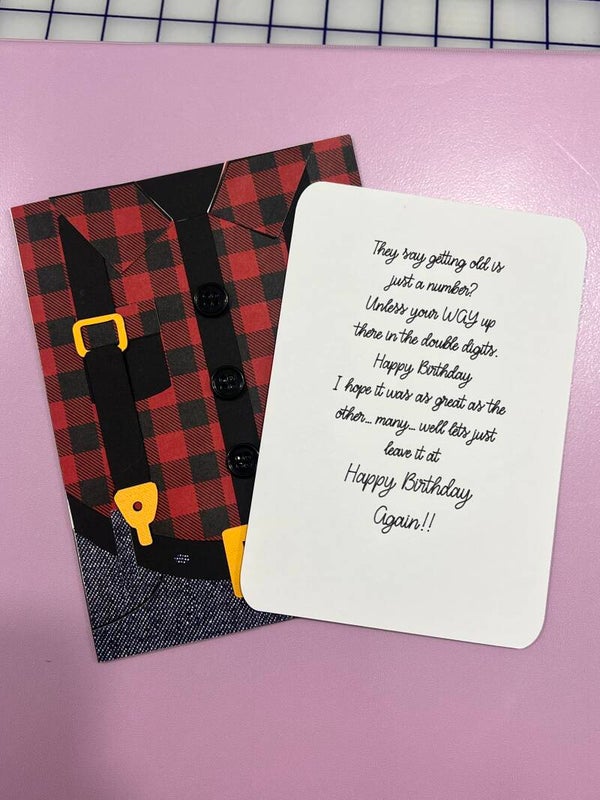 They say getting old is
just a number?
Unless your WAY up
there in the double digits.
Happy Birthday
I hope it was as great as the
other... many... well lets just
leave it at
Happy Birthday
Again!!